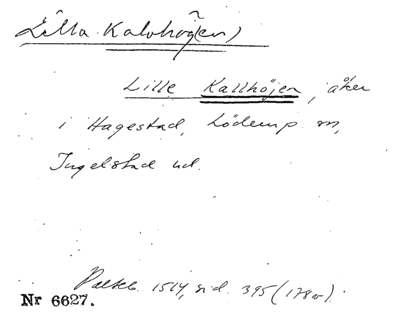 Lilla Kalvhög(en)
Lille Kallhöjen, åker
i Hagestad, Löderup sn,
Ingelstad hd.
1514, sid. 395 (178 v).
Nr 6627.